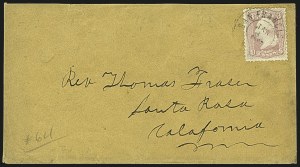 Rev Thomas Fraser
Santa Rosa
California